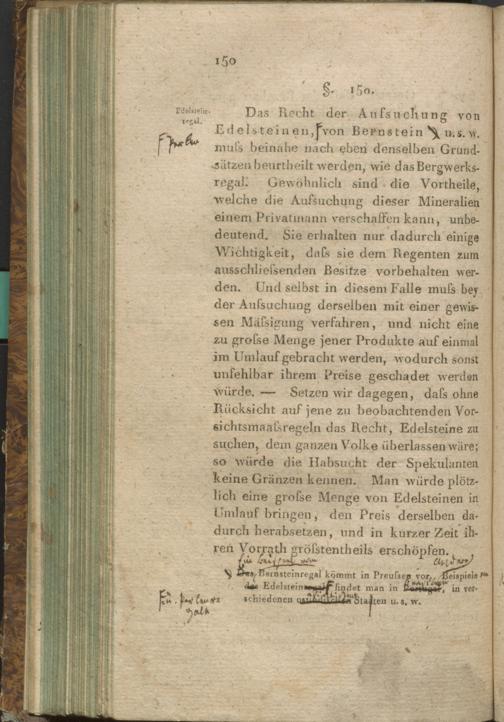 150
§. 150.
Edelstein-
regal.
Das Recht der Aufsuchung von
Edelsteinen, von Bernstein u. s. w.
muſs beinahe nach eben denselben Grund-
sätzen beurtheilt werden, wie das Bergwerks-
regal. Gewöhnlich sind die Vortheile,
welche die Aufsuchung dieser Mineralien
einem Privatmann verschaffen kann, unbe-
deutend. Sie erhalten nur dadurch einige
Wichtigkeit, daſs sie dem Regenten zum
ausschlieſsenden Besitze vorbehalten wer-
den. Und selbst in diesem Falle muſs bey
der Aufsuchung derselben mit einer gewis-
sen Mäſsigung verfahren, und nicht eine
zu groſse Menge jener Produkte auf einmal
im Umlauf gebracht werden, wodurch sonst
unfehlbar ihrem Preise geschadet werden
würde. — Setzen wir dagegen, daſs ohne
Rücksicht auf jene zu beobachtenden Vor-
sichtsmaaſsregeln das Recht, Edelsteine zu
suchen, dem ganzen Volke überlassen wäre;
so würde die Habsucht der Spekulanten
keine Gränzen kennen. Man würde plötz-
lich eine groſse Menge von Edelsteinen in
Umlauf bringen, den Preis derselben da-
durch herabsetzen, und in kurzer Zeit ih-
ren Vorrath gröſstentheils erschöpfen.
Das Bernsteinregal kömmt in Preuſsen vor, Beispiele
Edelstein findet man in in ver-
schiedenen Staaten u. s. w.